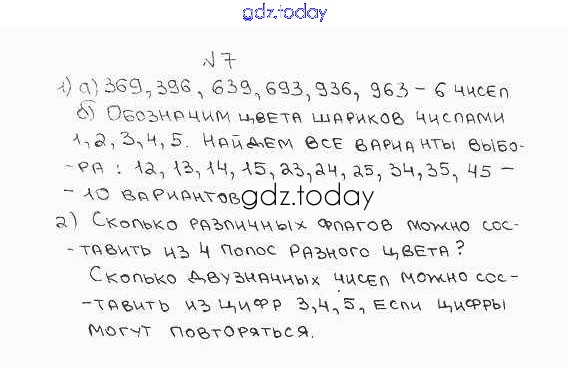 gdz.today
№7
1) а) 369, 396, 639, 693, 936, 963 – 6 чисел
б) Обозначим цвета шариков числами
1, 2, 3, 4, 5. Найдем все варианты выбо-
-ра : 12, 13, 14, 15, 23, 24, 25, 34, 35, 45 –
– 10 вариантов
gdz.today
2) Сколько различных флагов можно сос-
-тавить из 4 полос разного цвета?
Сколько двузначных чисел можно сос-
-тавить из цифр 3, 4, 5, если цифры
могут повторяться.